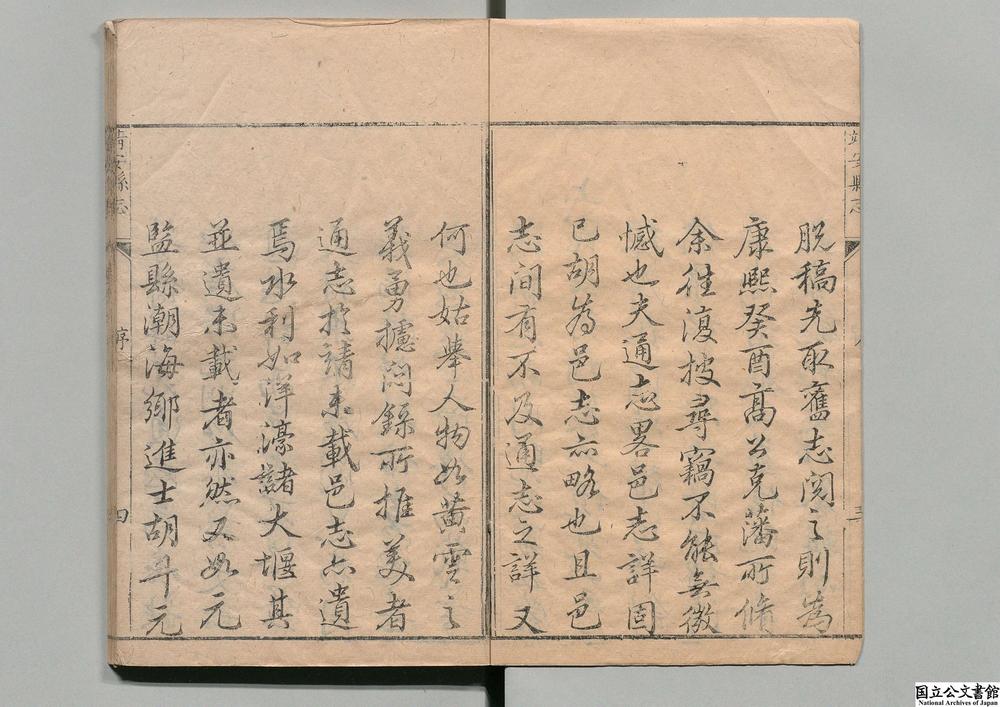 脫稿先取舊志閱之則為
康熙癸酉高公克藩所脩
余徃復搜尋竊不能無微
憾也夫通志畧邑志詳固
已胡為邑志亦略也且邑
志間有不及通志之詳又
何也姑舉人物如黃雲之
義勇攄悶錄所推美者
通志於靖未載邑志亦遺
焉水利如洋濠諸大堰其
並遺未載者亦然又如元
監縣潮海鄉進士胡斗元
靖安縣志
三
靖安縣志
序
四
国立公文書館
National Archives of Japan